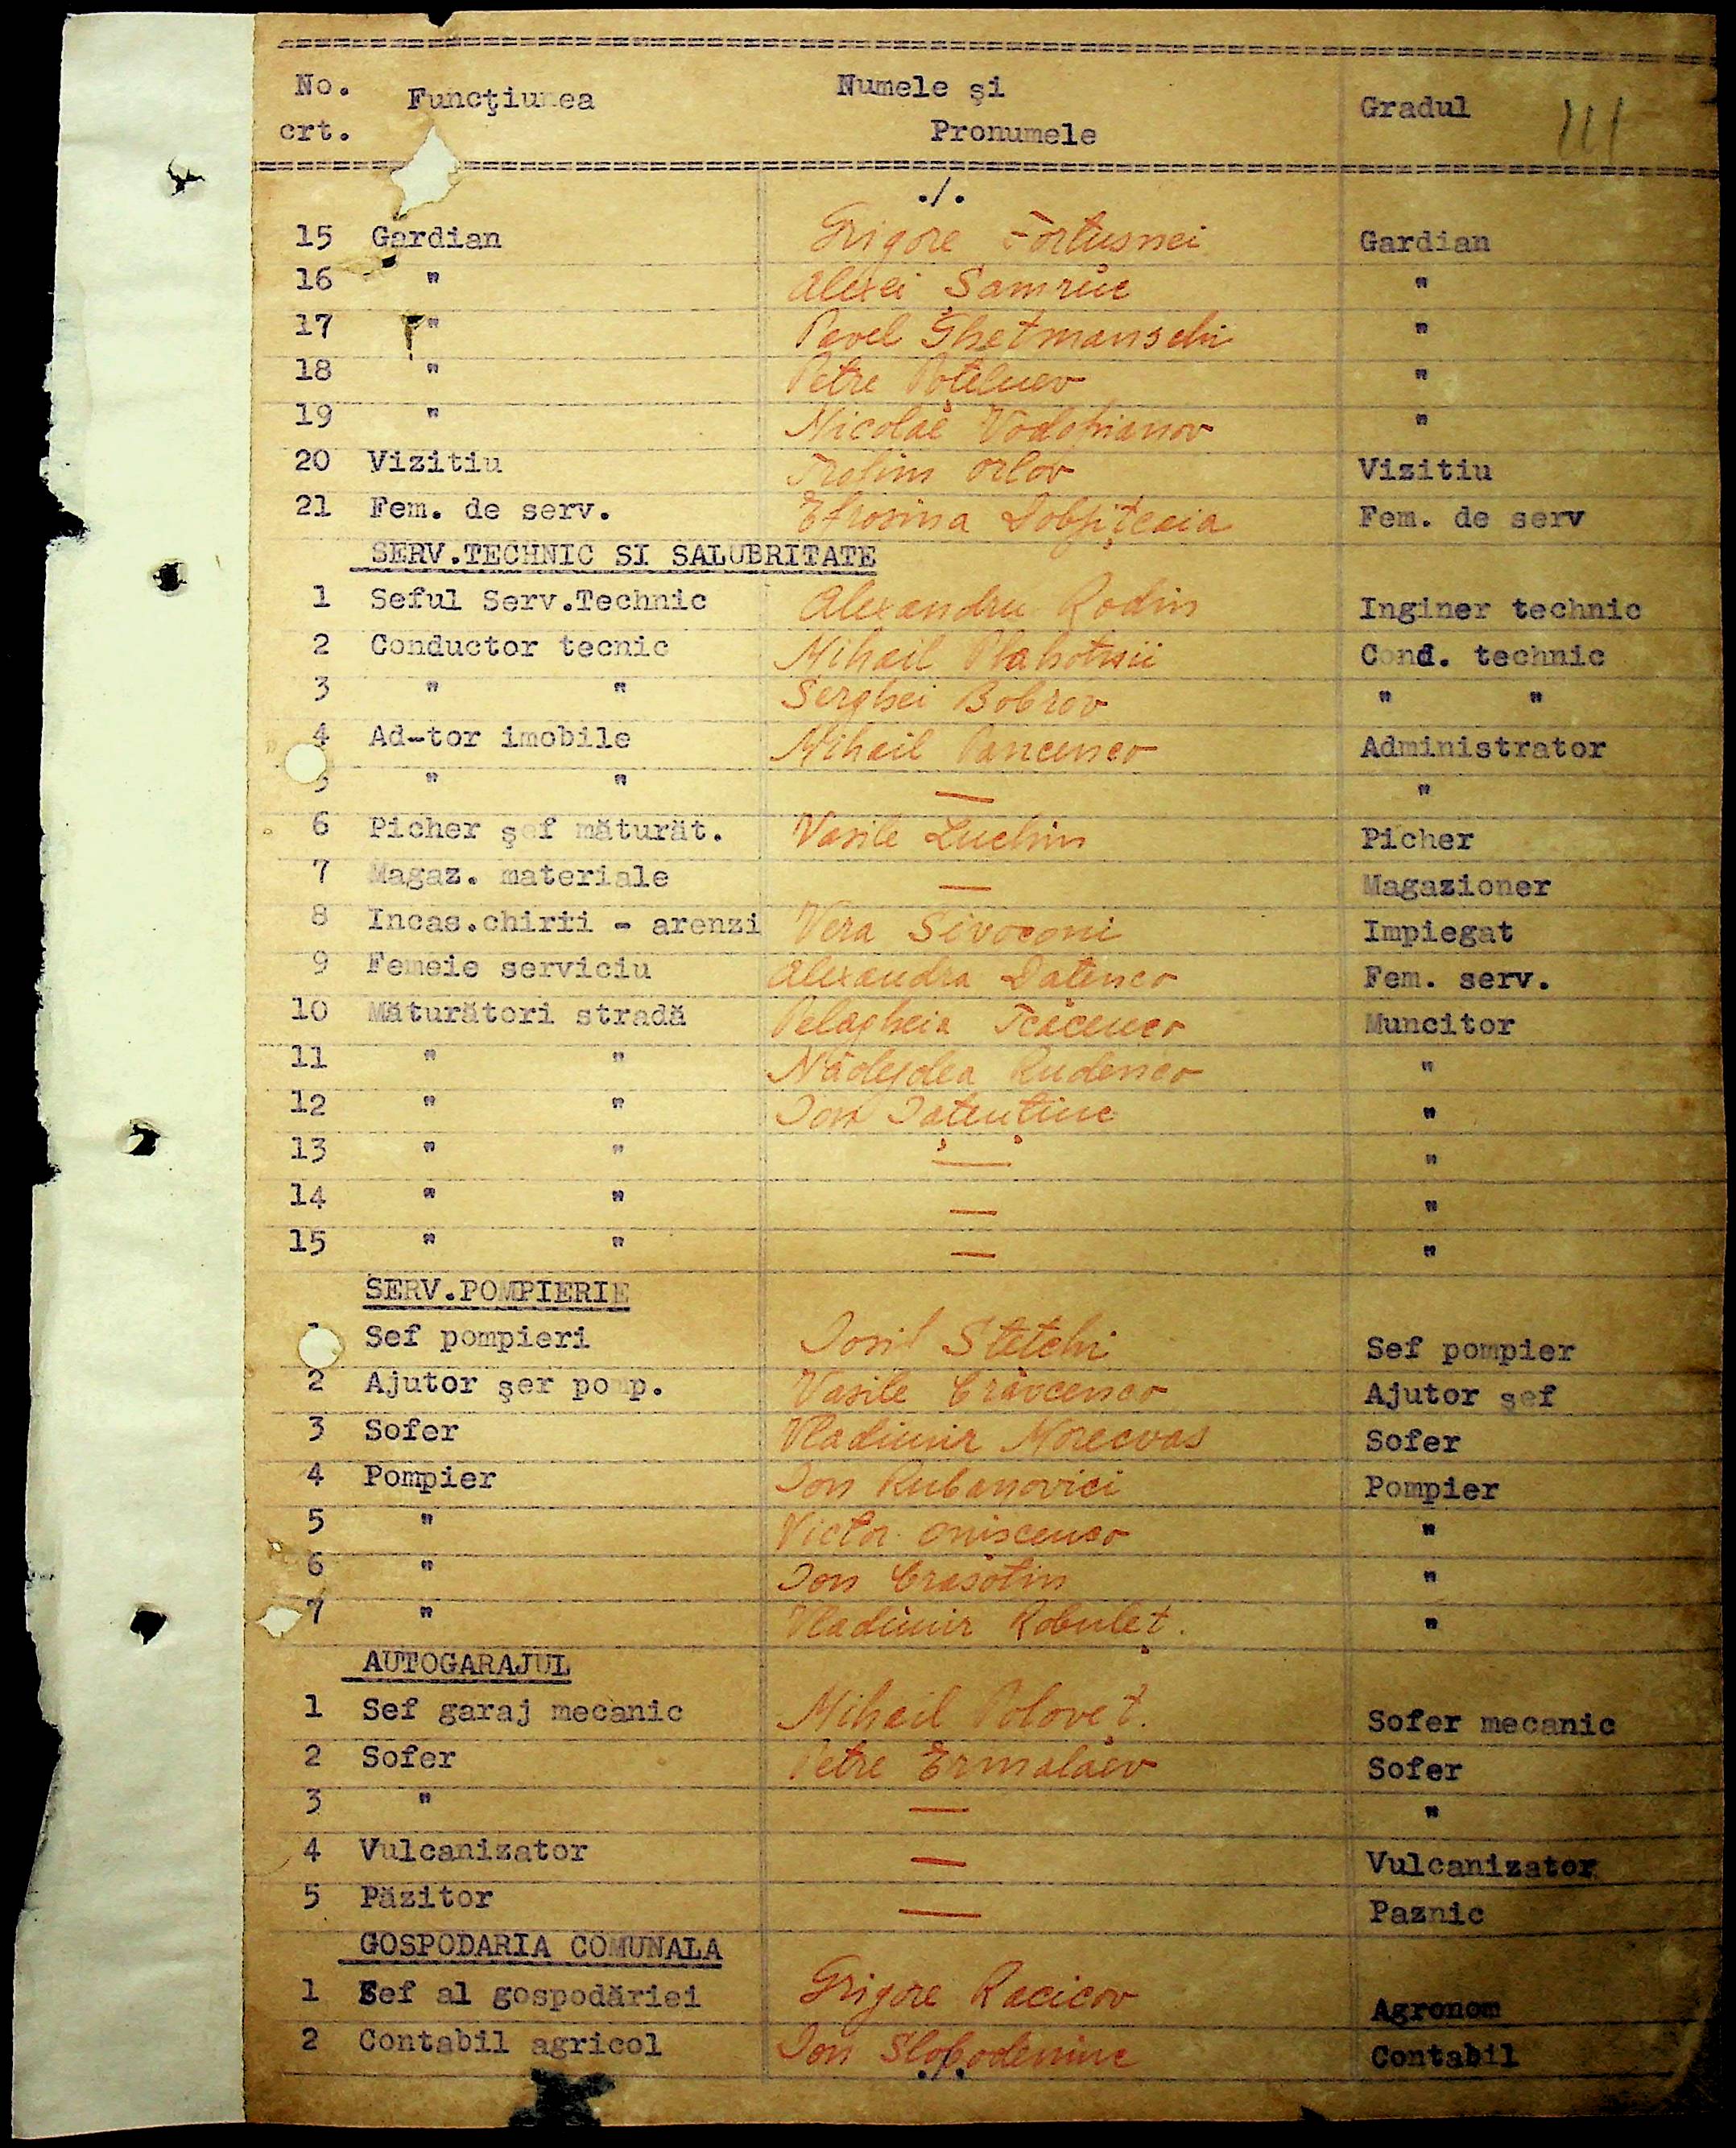 No. crt. Funcţiunea Numele şi Pronumele Gradul 111
./.
15 Gardian Grigore Fortusnei Gardian
16 " Alexei Samriuc "
17 " Pavel Ghetmanschi "
18 " Petre "
19 " Nicolae Vodopianov "
20 Vizitiu Trofim Orlov Vizitiu
21 Fem. de serv. Efrosina Fem. de serv
SERV.TECHNIC SI SALUBRITATE
1 Seful Serv.Technic Alexandru Rodin Inginer technic
2 Conductor tecnic Mihail Plahotnii Cond. technic
3 " " Serghei Bobrov " "
4 Ad-tor imobile Mihail Pancenco Administrator
5 " " — "
6 Picher şef măturăt. Vasile Luchin Picher
7 Magaz. materiale — Magazioner
8 Incas.chirii - arenzi Vera Sivoconi Impiegat
9 Femeie serviciu Alexandra Datenco Fem. serv.
10 Măturători stradă Pelagheia Tcacenco Muncitor
11 " " Nadejdea Rudenco "
12 " " Ion "
13 " " — "
14 " " — "
15 " " — "
SERV.POMPIERIE
Sef pompieri Iosif Stetchi Sef pompier
2 Ajutor şer pomp. Vasile Cravcenco Ajutor şef
3 Sofer Vladimir Morecvas Sofer
4 Pompier Ion Rubanovici Pompier
5 " Victor Oniscenco "
6 " Ion Crasotin "
7 " Vladimir Robuleţ. "
AUTOGARAJUL
1 Sef garaj mecanic Mihail Poloveţ. Sofer mecanic
2 Sofer Petre Ermolaev Sofer
3 " — "
4 Vulcanizator — Vulcanizator
5 Păzitor — Paznic
GOSPODARIA COMUNALA
1 Sef al gospodăriei Grigore Racicov Agronom
2 Contabil agricol Ion Slobodeniuc Contabil
./.